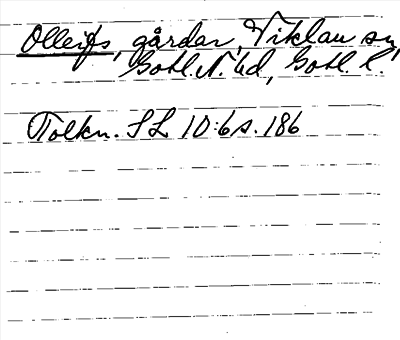 Olleifs, gårdar, Viklau sn,
Gotl. N. hd, Gotl. l.
Tolkn. SL 10:6 s. 186